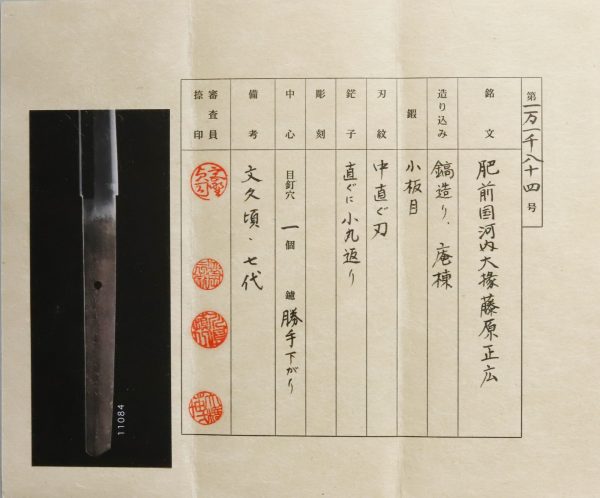 第一万一千八十四号
銘文 肥前国河内大掾藤原正広
造り込み 鎬造り、庵棟
鍛 小板目
刃紋 中直ぐ刃
鋩子 直ぐに小丸返り
彫刻
中心 目釘穴 一個 鑢 勝手下がり
備考 文久頃・七代
審査員捺印
11084